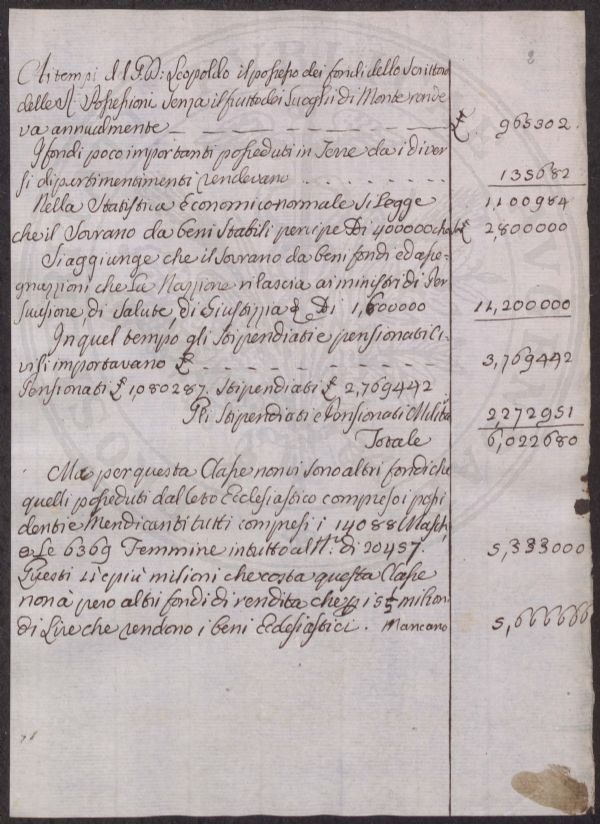 Ai tempi del P. D: Leopoldo il possesso dei fondi dello Scrittoio
delle R. Possessioni senza il frutto dei Luoghi di Monte rende
va annualmente 965302.
I fondi poco importanti posseduti in Terre da i diver
si dipartimentimenti rendevano 135682
1,100984
Nella Statistica Economico normale Si Legge
che il Sovrano da beni stabili percipe Di 400000 2,800000
Si aggiunge che il Sovrano da beni fondi ed asse=
gnazzioni che La Nazzione rilascia ai ministri di Per
suasione di Salute, di Giustizzia & Di 1,600000 11,200000
In quel tempo gli Stipendiati e pensionati Ci-
vili importavano £ 3,769442
Pensionati £ 1,080287. Stipendiati £ 2,769442
Gli Stipendiati e Pensionati Milita 2,272951
Totale 6,022680
Ma per questa Classe non vi sono altri fondi che
quelli posseduti dal Ceto Ecclesiastico compreso i possi
denti e Mendicanti tutti compresi i 14088 Masch,
e Le 6369 Femmine in tutto al N. di 20457. 5,333000
Questi sei e più milioni che costa questa Classe
non à pero altri fondi di rendita che i 5 1/3 milion
di Lire che rendono i beni Ecclesiastici. Mancano 5,666666